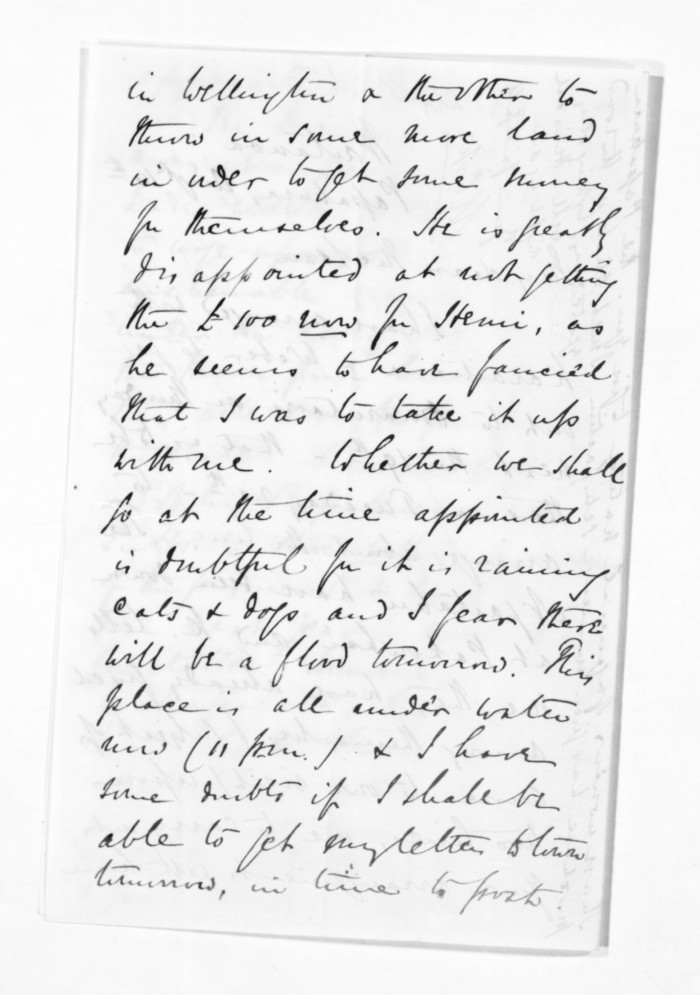 in Wellington & the other to
throw in some more land
in order to get some money
for themselves. He is greatly
disappointed at not getting
the £100 now for Hemi, as
he seems to have fancied
that I was to take it up
with me. Whether we shall
go at the time appointed
is doubtful for it is raining
cats & dogs and I fear there
will be a flood tomorrow. This
place is all under water
now (11 p.m.) & I have
some doubts if I shall be
able to get my letters to town
tomorrow, in time to post.